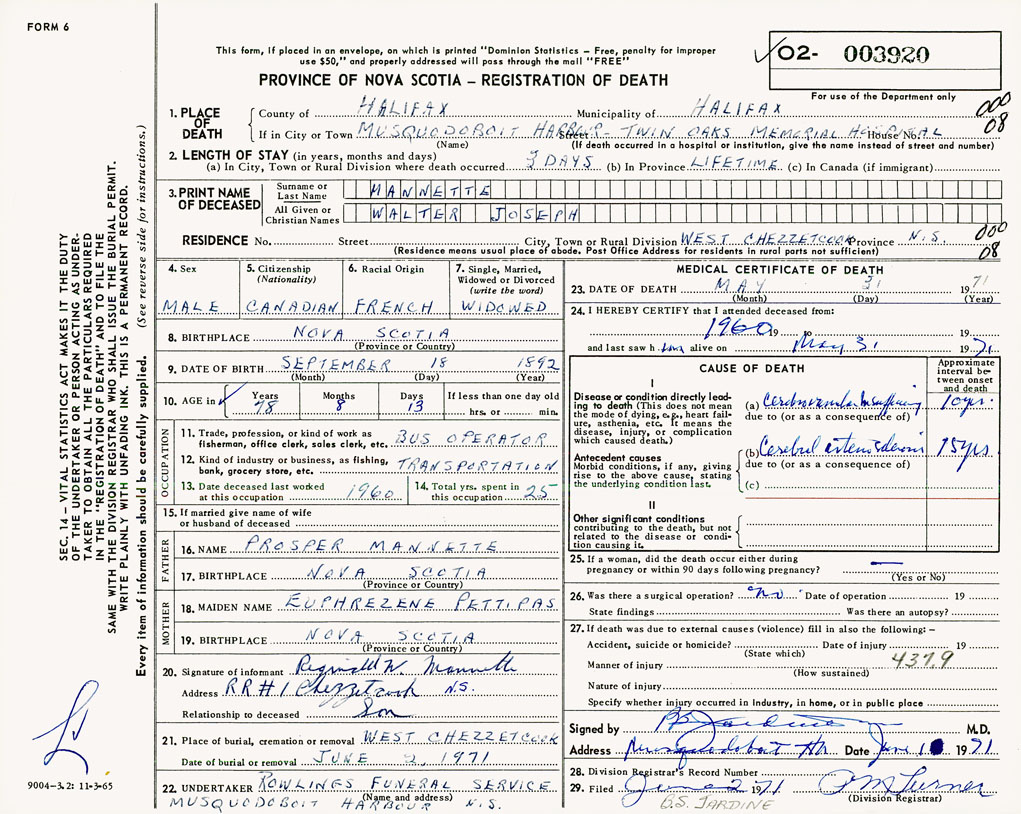 FORM 6
This form, if placed in an envelope, on which is printed "Dominion Statistics – Free, penalty for improper
use $50," and properly addressed will pass through the mail "FREE"
PROVINCE OF NOVA SCOTIA – REGISTRATION OF DEATH
O2- 003920
For use of the Department only
000
08
1. PLACE OF DEATH
County of HALIFAX Municipality of HALIFAX
If in City or Town MUSQUODOBOIT HARBOUR - TWIN OAKS MEMORIAL HOSPITAL Street House No.
(Name) (If death occurred in a hospital or institution, give the name instead of street and number)
2. LENGTH OF STAY (in years, months and days)
(a) In City, Town or Rural Division where death occurred 3 DAYS (b) In Province LIFETIME (c) In Canada (if immigrant)
3. PRINT NAME OF DECEASED
Surname or Last Name MANNETTE
All Given or Christian Names WALTER JOSEPH
RESIDENCE No. Street City, Town or Rural Division WEST CHEZZETCOOK Province N.S.
(Residence means usual place of abode. Post Office Address for residents in rural parts not sufficient)
000
08
4. Sex MALE
5. Citizenship (Nationality) CANADIAN
6. Racial Origin FRENCH
7. Single, Married, Widowed or Divorced (write the word) WIDOWED
8. BIRTHPLACE NOVA SCOTIA
(Province or Country)
9. DATE OF BIRTH SEPTEMBER 18 1892
(Month) (Day) (Year)
10. AGE in Years 78 Months 8 Days 13 If less than one day old
hrs. or min.
OCCUPATION
11. Trade, profession, or kind of work as
fisherman, office clerk, sales clerk, etc. BUS OPERATOR
12. Kind of industry or business, as fishing,
bank, grocery store, etc. TRANSPORTATION
13. Date deceased last worked
at this occupation 1960
14. Total yrs. spent in
this occupation 25
15. If married give name of wife
or husband of deceased
FATHER
16. NAME PROSPER MANNETTE
17. BIRTHPLACE NOVA SCOTIA
(Province or Country)
MOTHER
18. MAIDEN NAME EUPHREZENE PETTIPAS
19. BIRTHPLACE NOVA SCOTIA
(Province or Country)
20. Signature of informant Reginald W. Mannette
Address RR#1 Chezzetcook N.S.
Relationship to deceased Son
21. Place of burial, cremation or removal WEST CHEZZETCOOK
Date of burial or removal JUNE 2, 1971
22. UNDERTAKER ROWLINGS FUNERAL SERVICE
(Name and address)
MUSQUODOBOIT HARBOUR N.S.
MEDICAL CERTIFICATE OF DEATH
23. DATE OF DEATH MAY 31 1971
(Month) (Day) (Year)
24. I HEREBY CERTIFY that I attended deceased from:
1960 19 to 19
and last saw h im alive on May 31 1971
CAUSE OF DEATH
Approximate interval between onset and death
I
Disease or condition directly leading to death (This does not mean the mode of dying, e.g., heart failure, asthenia, etc. It means the disease, injury, or complication which caused death.)
(a) Cerebrovascular Insufficiency 10 yrs.
due to (or as a consequence of)
Antecedent causes
Morbid conditions, if any, giving rise to the above cause, stating the underlying condition last.
(b) Cerebral arteriosclerosis 15 yrs
due to (or as a consequence of)
(c)
II
Other significant conditions
contributing to the death, but not related to the disease or condition causing it.
25. If a woman, did the death occur either during
pregnancy or within 90 days following pregnancy? —
(Yes or No)
26. Was there a surgical operation? no Date of operation 19
State findings Was there an autopsy?
27. If death was due to external causes (violence) fill in also the following: –
Accident, suicide or homicide? Date of injury 19
(State which)
437.9
Manner of injury
(How sustained)
Nature of injury
Specify whether injury occurred in industry, in home, or in public place
Signed by BS Jardine M.D.
Address Musquodoboit Hbr Date June 1 1971
28. Division Registrar's Record Number
29. Filed June 2 1971 PM Turner
(Division Registrar)
B.S. JARDINE
SEC. 14 – VITAL STATISTICS ACT MAKES IT THE DUTY
OF THE UNDERTAKER OR PERSON ACTING AS UNDER-
TAKER TO OBTAIN ALL THE PARTICULARS REQUIRED
IN THE "REGISTRATION OF DEATH" AND TO FILE THE
SAME WITH THE DIVISION REGISTRAR WHO SHALL ISSUE THE BURIAL PERMIT.
WRITE PLAINLY WITH UNFADING INK. THIS IS A PERMANENT RECORD.
Every item of information should be carefully supplied. (See reverse side for instructions.)
9004-3.2: 11-3-65